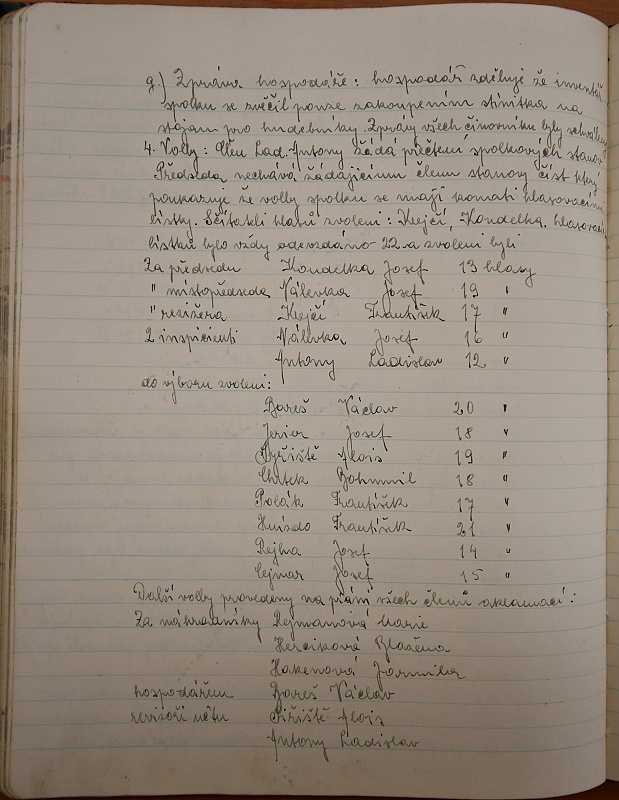 g.) Zpráva hospodáře: hospodář sděluje že inventář
spolku se zvěčil pouze zakoupením stínítka na
stojan pro hudebníky. Zprávy všech činovníku byly schváleny
4. Volby: Člen Lad. Antony žádá přečtení spolkových stanov
Předseda nechává žádajícímu členu stanovy číst který
poukazuje že volby spolku se mají konati hlasovacími
lístky. Sčitateli hlasů zvoleni: Krejčí, Koudelka. hlasovací
lístku bylo vždy odevzdáno 22 a zvoleni byli
Za předsedu Koudelka Josef 13 hlasy
" místopředseda Válevka Josef 19 "
" režiséra Krejčí František 17 "
2 inspicienti Válevka Josef 16 "
Antony Ladislav 12 "
do výboru zvoleni:
Bareš Václav 20 "
Jerior Josef 18 "
Alois 19 "
Chrtek Bohumil 18 "
Polák František 17 "
Hnízdo František 21 "
Rejha Josef 14 "
Cejnar Josef 15 "
Další volby provedeny na přání všech členů aklamací:
Za náhradníky Rejmanová Marie
Hercíková Blažena
Hakenová Jarmila
hospodářem Bareš Václav
revisoři účtu Alois
Antony Ladislav